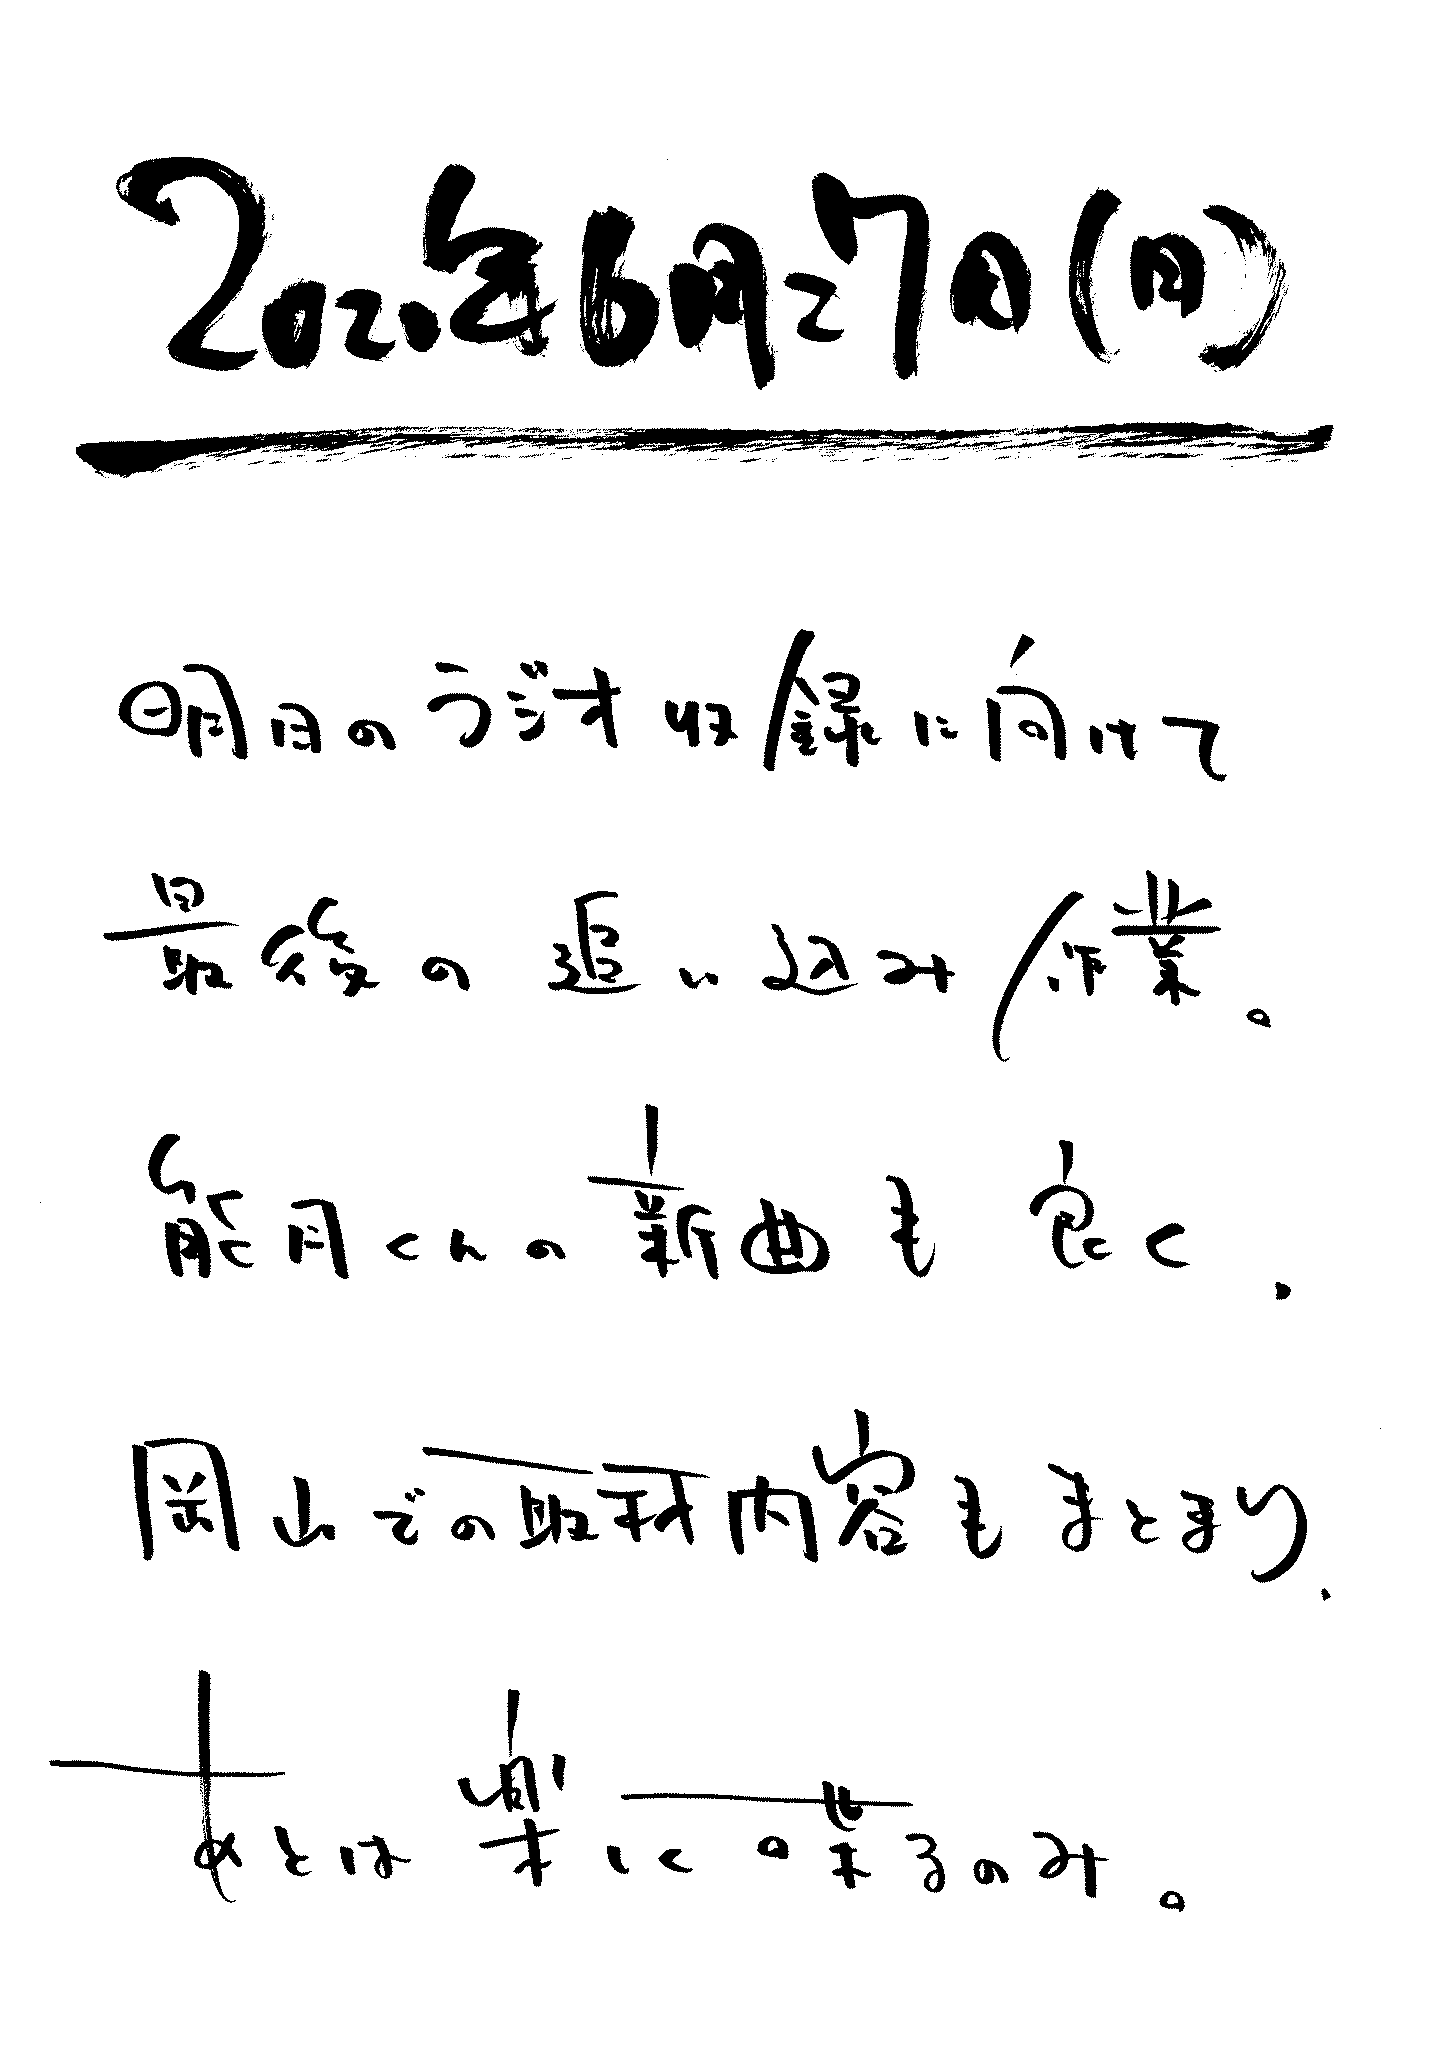 2021年6月27日(日)
明日のラジオ収録に向けて
最後の追い込み作業。
能月くんの新曲も良く、
岡山での取材内容もまとまり、
あとは楽しく喋るのみ。